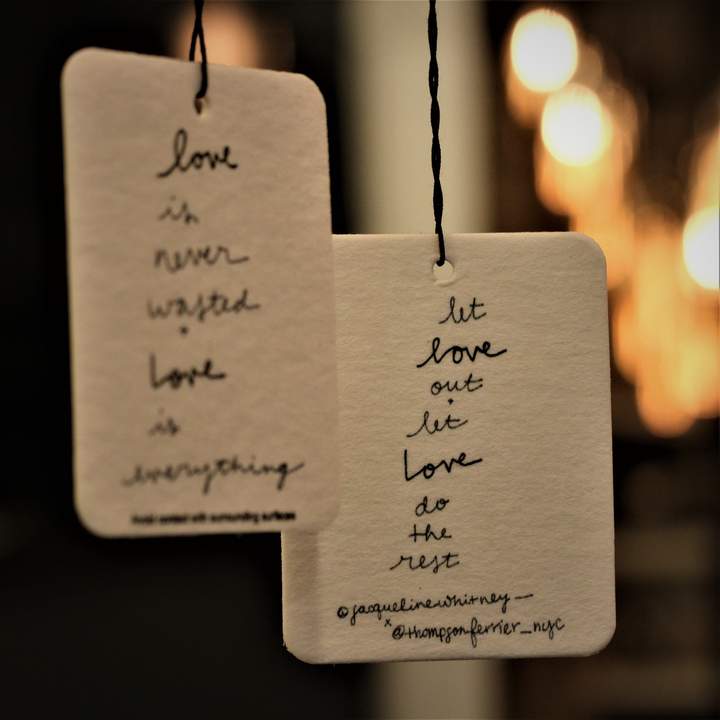 love
is
never
wasted
•
Love
is
everything
Avoid contact with surrounding surfaces
let
love
out
•
let
Love
do
the
rest
@jacquelinewhitney_
x
@thompsonferrier_nyc